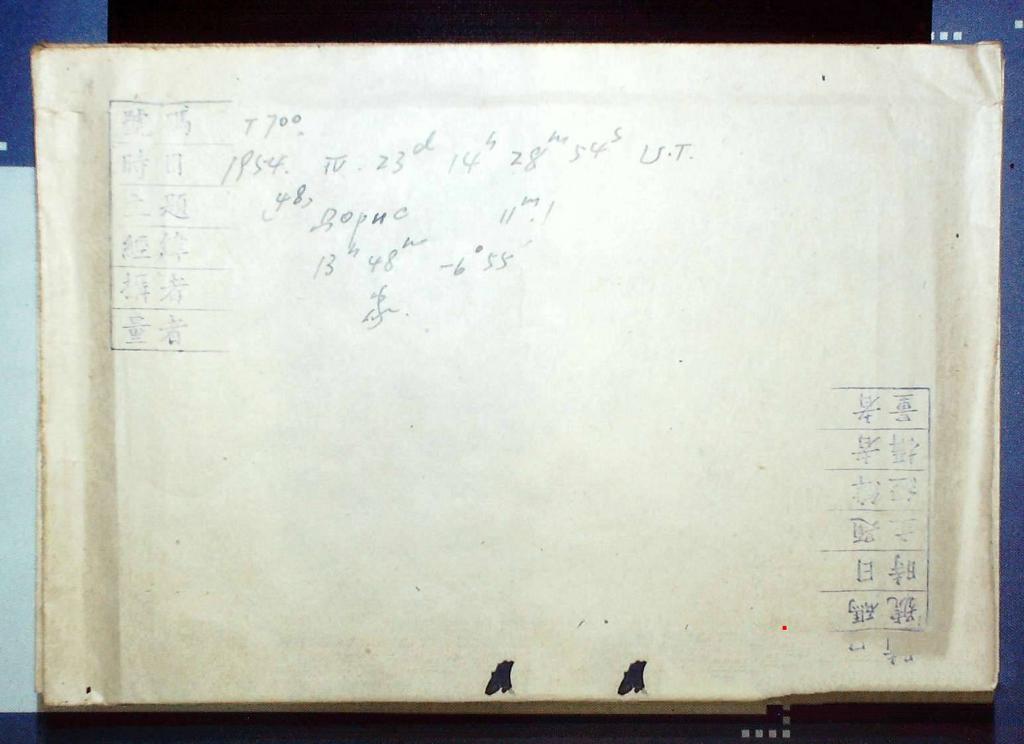 號碼 T 700.
時日 1954. IV. 23ᵈ 14ʰ 28ᵐ 54ˢ U.T.
主題 (48) Дорис 11ᵐ.1
經緯 13ʰ 48ᵐ -6° 55′
攝者
量者
量者
攝者
經緯
主題
時日
號碼
時日